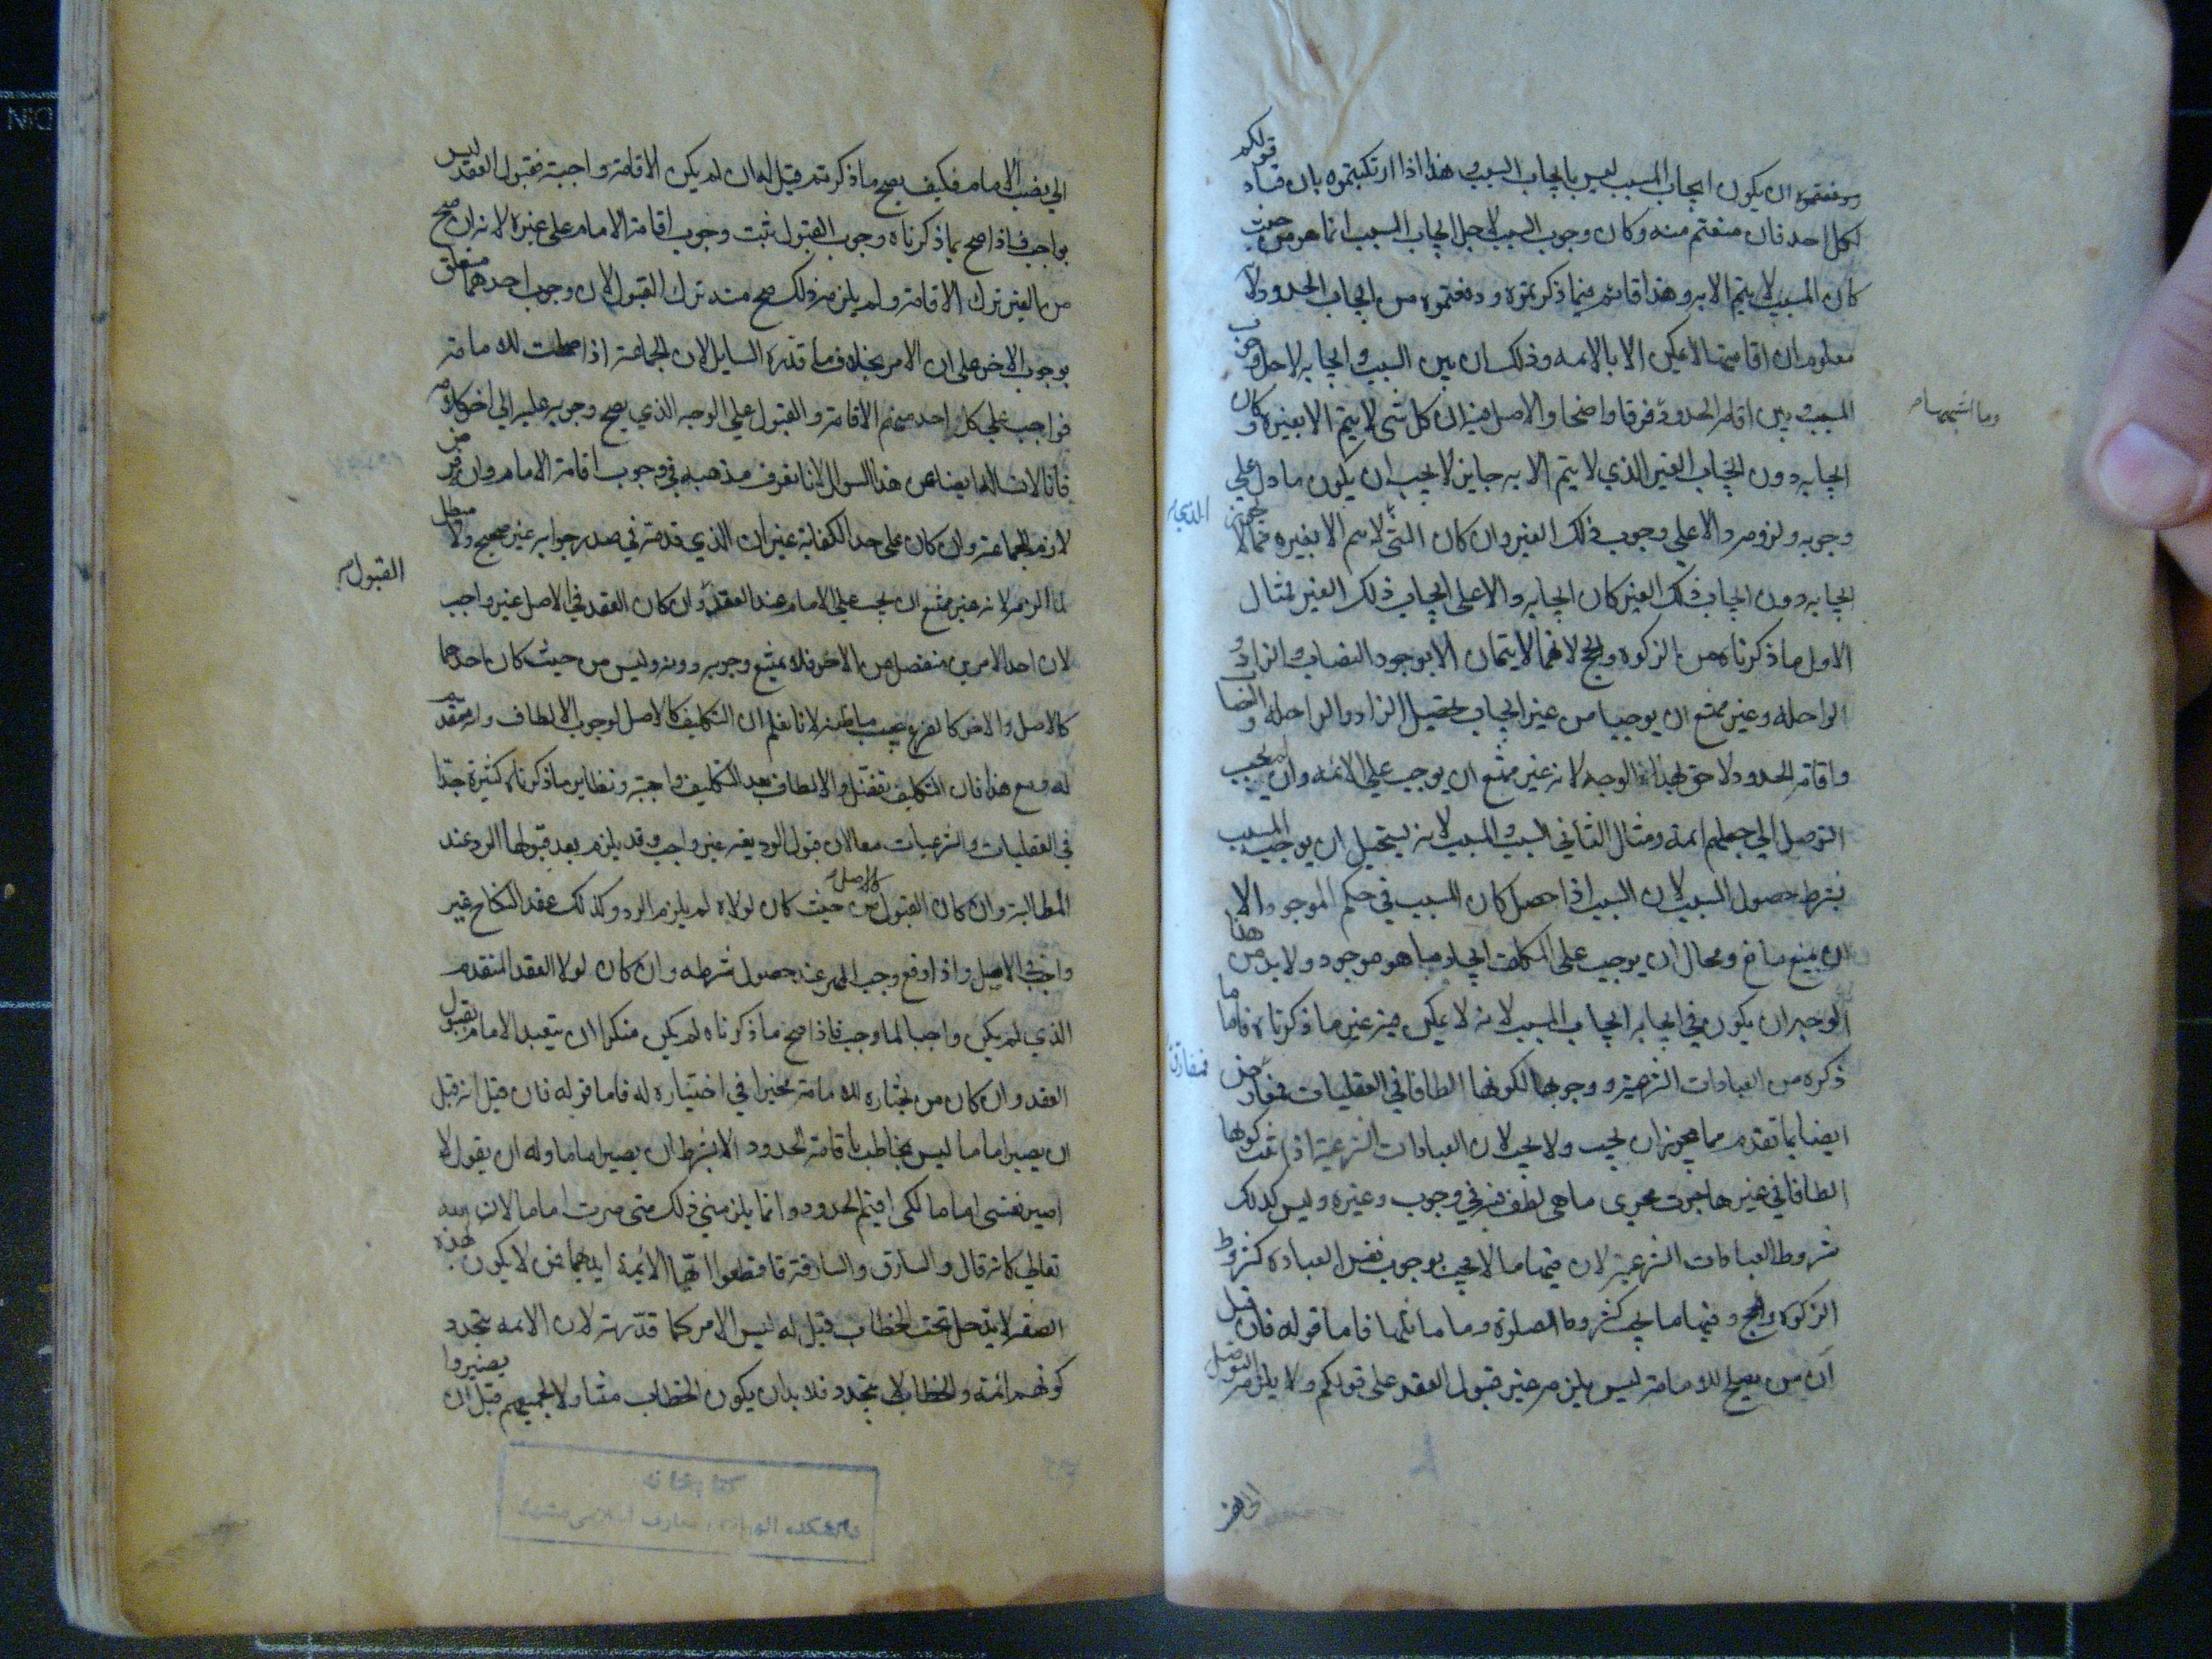 ودفعتموه ان يكون ايجاب المسبب ليس بايجاب السبب هذا اذا ارتكبتموه بان فساد قولكم
لكل احد فان منعتم منه وكان وجوب السبب لاجل ايجاب المسبب انما هو من حيث
كان المسبب لا يتم الا به وهذا قائم فيما ذكرتموه ودفعتموه من ايجاب الحدود لانه
معلوم ان اقامتها لا يمكن الا بالائمه وذلك ان بين السبب وايجابه لاجل وجوب
المسبب وبين اقامة الحدود فرقا واضحا والاصل فيه ان كل شئ لا يتم الا بغيره وكان
وما اشبهها
ايجابه دون ايجاب الغير الذي لا يتم الا به جايز لا يجب ان يكون ما دل علي
وجوبه ولزومه دالا علي وجوب ذلك الغير وان كان الشئ لا يتم الا بغيره فما لا يجوز
ايجابه دون ايجاب ذلك الغير كان ايجابه دالا على ايجاب ذلك الغير فمثال
الاول ما ذكرناه من الزكوة والحج لانهما لا يتمان الا بوجود النصاب والزاد و
الراحله وغير ممتنع ان يوجبا من غير ايجاب تحصيل الزاد والراحله والنصاب
واقامة الحدود لاحق بهذا الوجه لانه غير ممتنع ان يوجب علي الائمه وان لم يجب
التوصل الي جعلهم ائمة ومثال الثاني السبب والمسبب لانه يستحيل ان يوجب المسبب
بشرط حصول السبب لان السبب اذا حصل كان المسبب في حكم الموجود الا
ان يمنع مانع ومحال ان يوجب على المكلف ايجاد ما هو موجود ولا بد من هذا
الوجه ان يكون في ايجابه ايجاب المسبب لانه لا يمكن فيه غير ما ذكرناه فاما ما
ذكره من العبادات الشرعية ووجوبها لكونها الطافا في العقليات فمفارق
ايضا لما تقدم مما يجوز ان يجب ولا يجب لان العبادات الشرعية اذا ثبت كونها
الطافا في غيرها جرت مجرى ما هي لطف فيه في وجوب وغيره وليس كذلك
شروط العبادات الشرعية لان فيها ما لا يجب بوجوب نفس العبادة كشروط
الزكوة والحج وفيها ما يجب كشروط الصلوة وما ماثلها فاما قوله فان قيل
ان من يصلح للامامة ليس يلزم غير قبول العقد على قولكم ولا يلزمه التوصل
الي نصب الامام فكيف يصح ما ذكرتم قيل له ان لم يكن الاقامة واجبة فقبول العقد ليس
بواجب فاذا صح بما ذكرناه وجوب القبول ثبت وجوب اقامة الامام على غيره لانه ان صح
من الغير ترك الاقامة ولم يلزمه ذلك صح منه ترك القبول لان وجوب احدهما متعلق
بوجوب الاخر على ان الامر بخلاف ما قدره السايل لان الجماعة اذا صلحت للامامة
فواجب علي كل احد منهم الاقامة والقبول علي الوجه الذي يصح وجوبه عليه الي اخر كلامه
فانا لا نسالهما ايضا عن هذا السوال لانا نعرف مذهبه في وجوب اقامة الامام وان فرض
لازم للجماعة وان كان على حد الكفاية غير ان الذي قدمه في صدر جوابه غير صحيح ولا مبطل
لما الزم لانه غير ممتنع ان يجب علي الامام عند العقد القبول وان كان العقد في الاصل غير واجب
لان احد الامرين منفصل من الاخر فلا يمتنع وجوبه دونه وليس من حيث كان احدهما
كالاصل والاخر كالفرع يجب ما ظنه لانا نعلم ان التكليف كالاصل لوجوب الالطاف
له ومع هذا فان التكليف تفضل والالطاف بعد التكليف واجبة ونظاير ما ذكرناه كثيرة جدا
في العقليات والشرعيات معا لان قبول الوديعة غير واجب وقد يلزم بعد قبولها الرد عند
المطالبة وان كان القبول كالاصل من حيث كان لولاه لم يلزم الرد وكذلك عقد النكاح غير
واجب في الاصل واذا وقع وجب المهر عند حصول شرطه وان كان لولا العقد المتقدم
الذي لم يكن واجبا لما وجب فاذا صح ما ذكرناه لم يكن منكرا ان يتعبد الامام بقبول
العقد وان كان من يختاره للامامة مخيرا في اختياره له فاما قوله فان قيل انه قبل
ان يصير اماما ليس يخاطب باقامة الحدود الا بشرط ان يصير اماما وله ان يقول لا
اصير نفسي اماما لكي اقيم الحدود وانما يلزمني ذلك متى صرت اماما لان الله
تعالي كانه قال والسارق والسارقة فاقطعوا ايها الائمة ايديهما فمن لا يكون بهذه
الصفة لا يدخل تحت الخطاب قيل له ليس الامر كما قدرته لان الائمه يتجدد
كونهم ائمة والخطاب لا يتجدد فلا بد ان يكون الخطاب متناولا لجميعهم قبل ان يصيروا